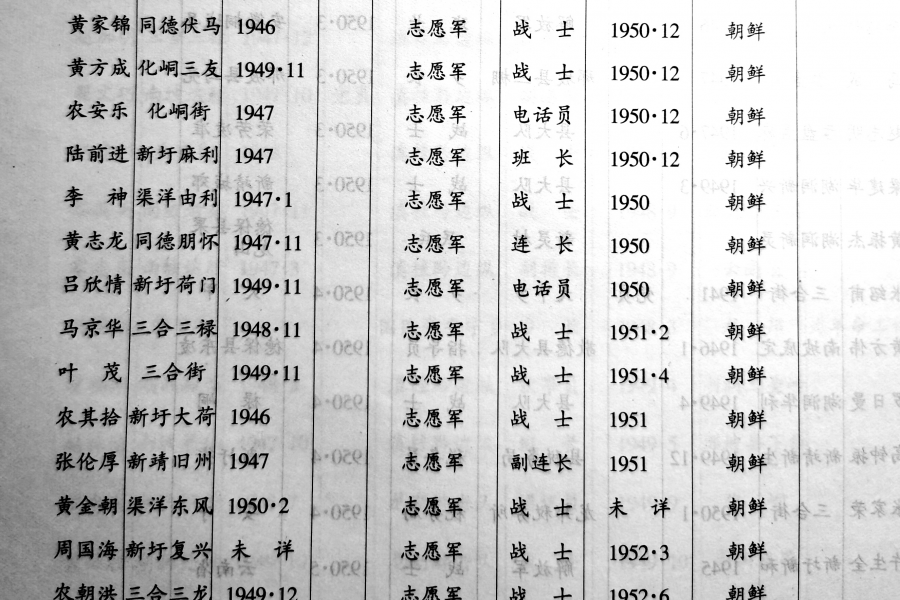 黄家锦 同德伏马 1946 志愿军 战 士 1950·12 朝鲜
黄方成 化峒三友 1949·11 志愿军 战 士 1950·12 朝鲜
农安乐 化峒街 1947 志愿军 电话员 1950·12 朝鲜
陆前进 新圩麻利 1947 志愿军 班 长 1950·12 朝鲜
李 神 渠洋由利 1947·1 志愿军 战 士 1950 朝鲜
黄志龙 同德朋怀 1947·11 志愿军 连 长 1950 朝鲜
吕欣情 新圩荷门 1949·11 志愿军 电话员 1950 朝鲜
马京华 三合三禄 1948·11 志愿军 战 士 1951·2 朝鲜
叶 茂 三合街 1949·11 志愿军 战 士 1951·4 朝鲜
农其拾 新圩大荷 1946 志愿军 战 士 1951 朝鲜
张伦厚 新靖旧州 1947 志愿军 副连长 1951 朝鲜
黄金朝 渠洋东风 1950·2 志愿军 战 士 未 详 朝鲜
周国海 新圩复兴 未 详 志愿军 战 士 1952·3 朝鲜
农朝洪 三合三龙 1949·12 志愿军 战 士 1952·6 朝鲜